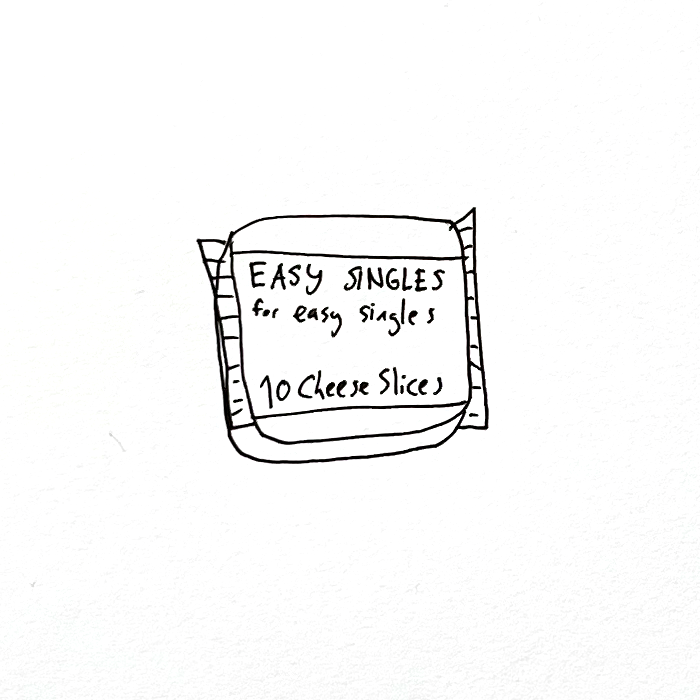 EASY SINGLES
for easy singles
10 Cheese Slices